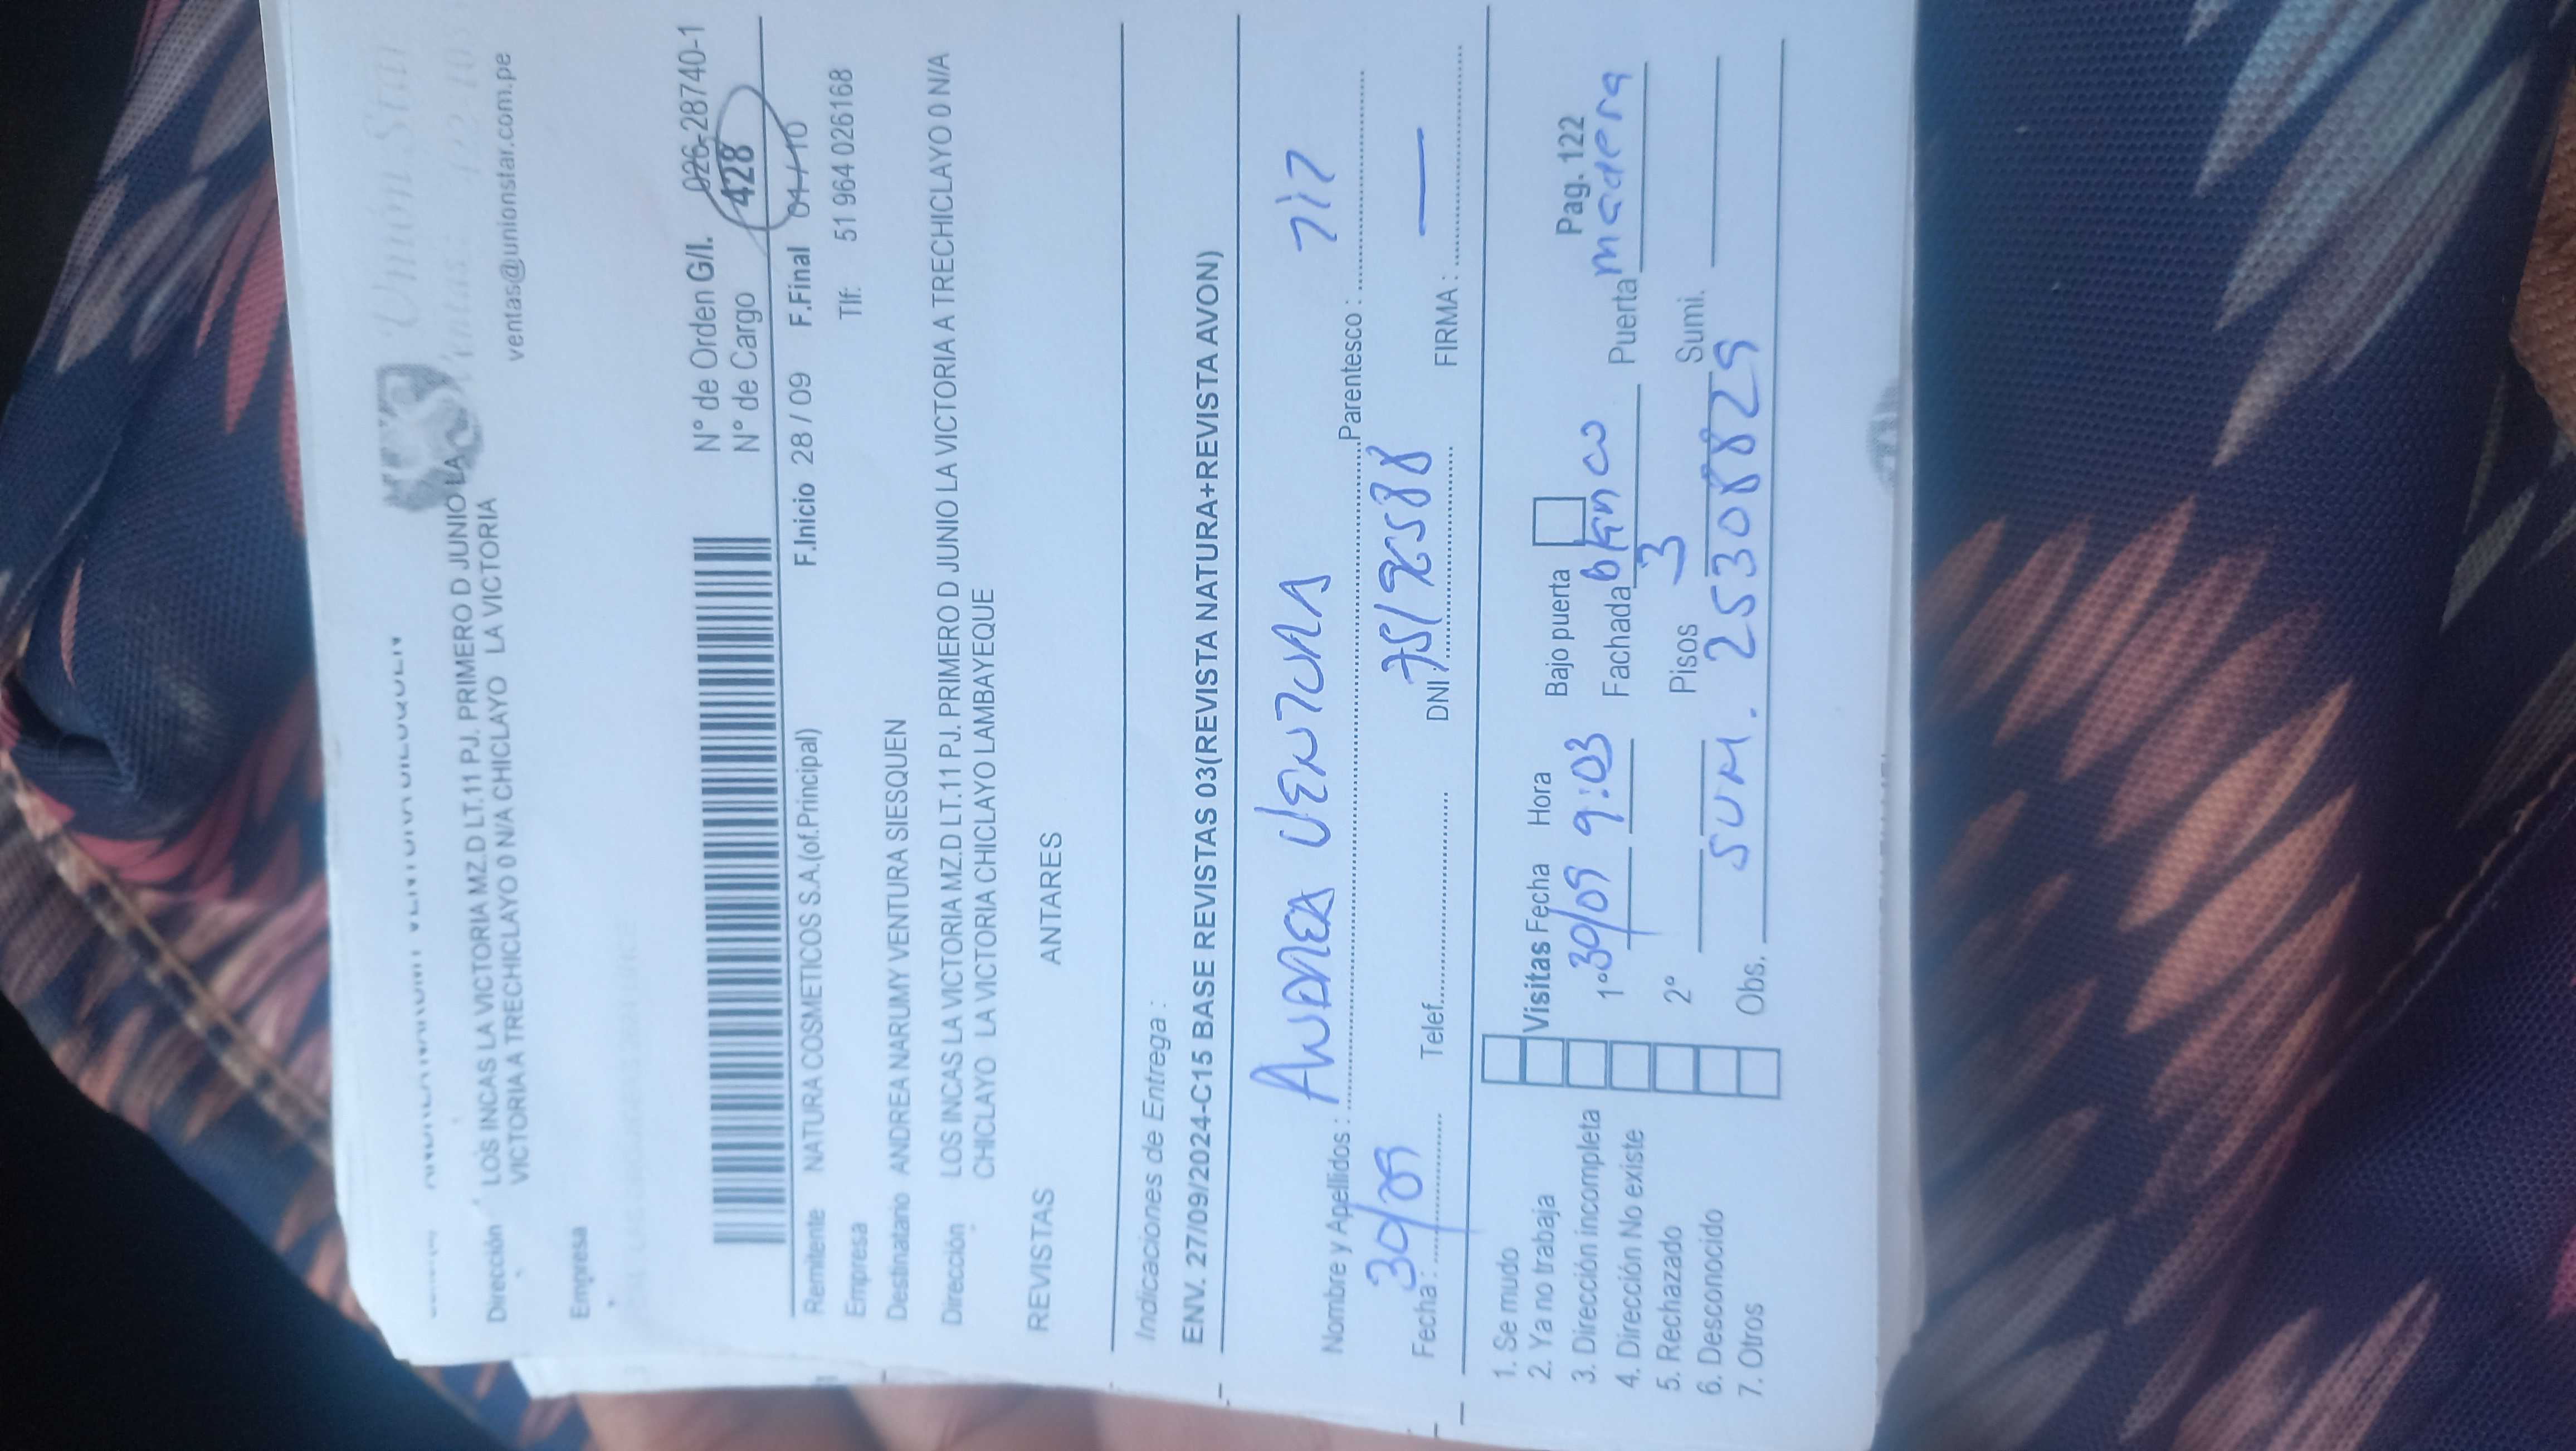 Unión Star
ventas@unionstar.com.pe
Dirección LOS INCAS LA VICTORIA MZ.D LT.11 PJ. PRIMERO D JUNIO LA
VICTORIA A TRECHICLAYO 0 N/A CHICLAYO LA VICTORIA
Empresa
N° de Orden G/I. 026-287740-1
N° de Cargo 428
F.Inicio 28 / 09 F.Final 01 / 10
Remitente NATURA COSMETICOS S.A.(of.Principal)
Tlf: 51 964 026168
Empresa
Destinatario ANDREA NARUMY VENTURA SIESQUEN
Dirección LOS INCAS LA VICTORIA MZ.D LT.11 PJ. PRIMERO D JUNIO LA VICTORIA A TRECHICLAYO 0 N/A
CHICLAYO LA VICTORIA CHICLAYO LAMBAYEQUE
REVISTAS ANTARES
Indicaciones de Entrega :
ENV. 27/09/2024-C15 BASE REVISTAS 03(REVISTA NATURA+REVISTA AVON)
Nombre y Apellidos : ANDREA VENTURA Parentesco :
Fecha : 30/09 Telef. DNI FIRMA :
1. Se mudo
2. Ya no trabaja
3. Dirección incompleta
4. Dirección No existe
5. Rechazado
6. Desconocido
7. Otros
Visitas Fecha Hora Bajo puerta Pag. 122
1° 30/09 9:03 Fachada Puerta madera
2° Pisos 3 Sumi.
Obs. SUM. 25308829